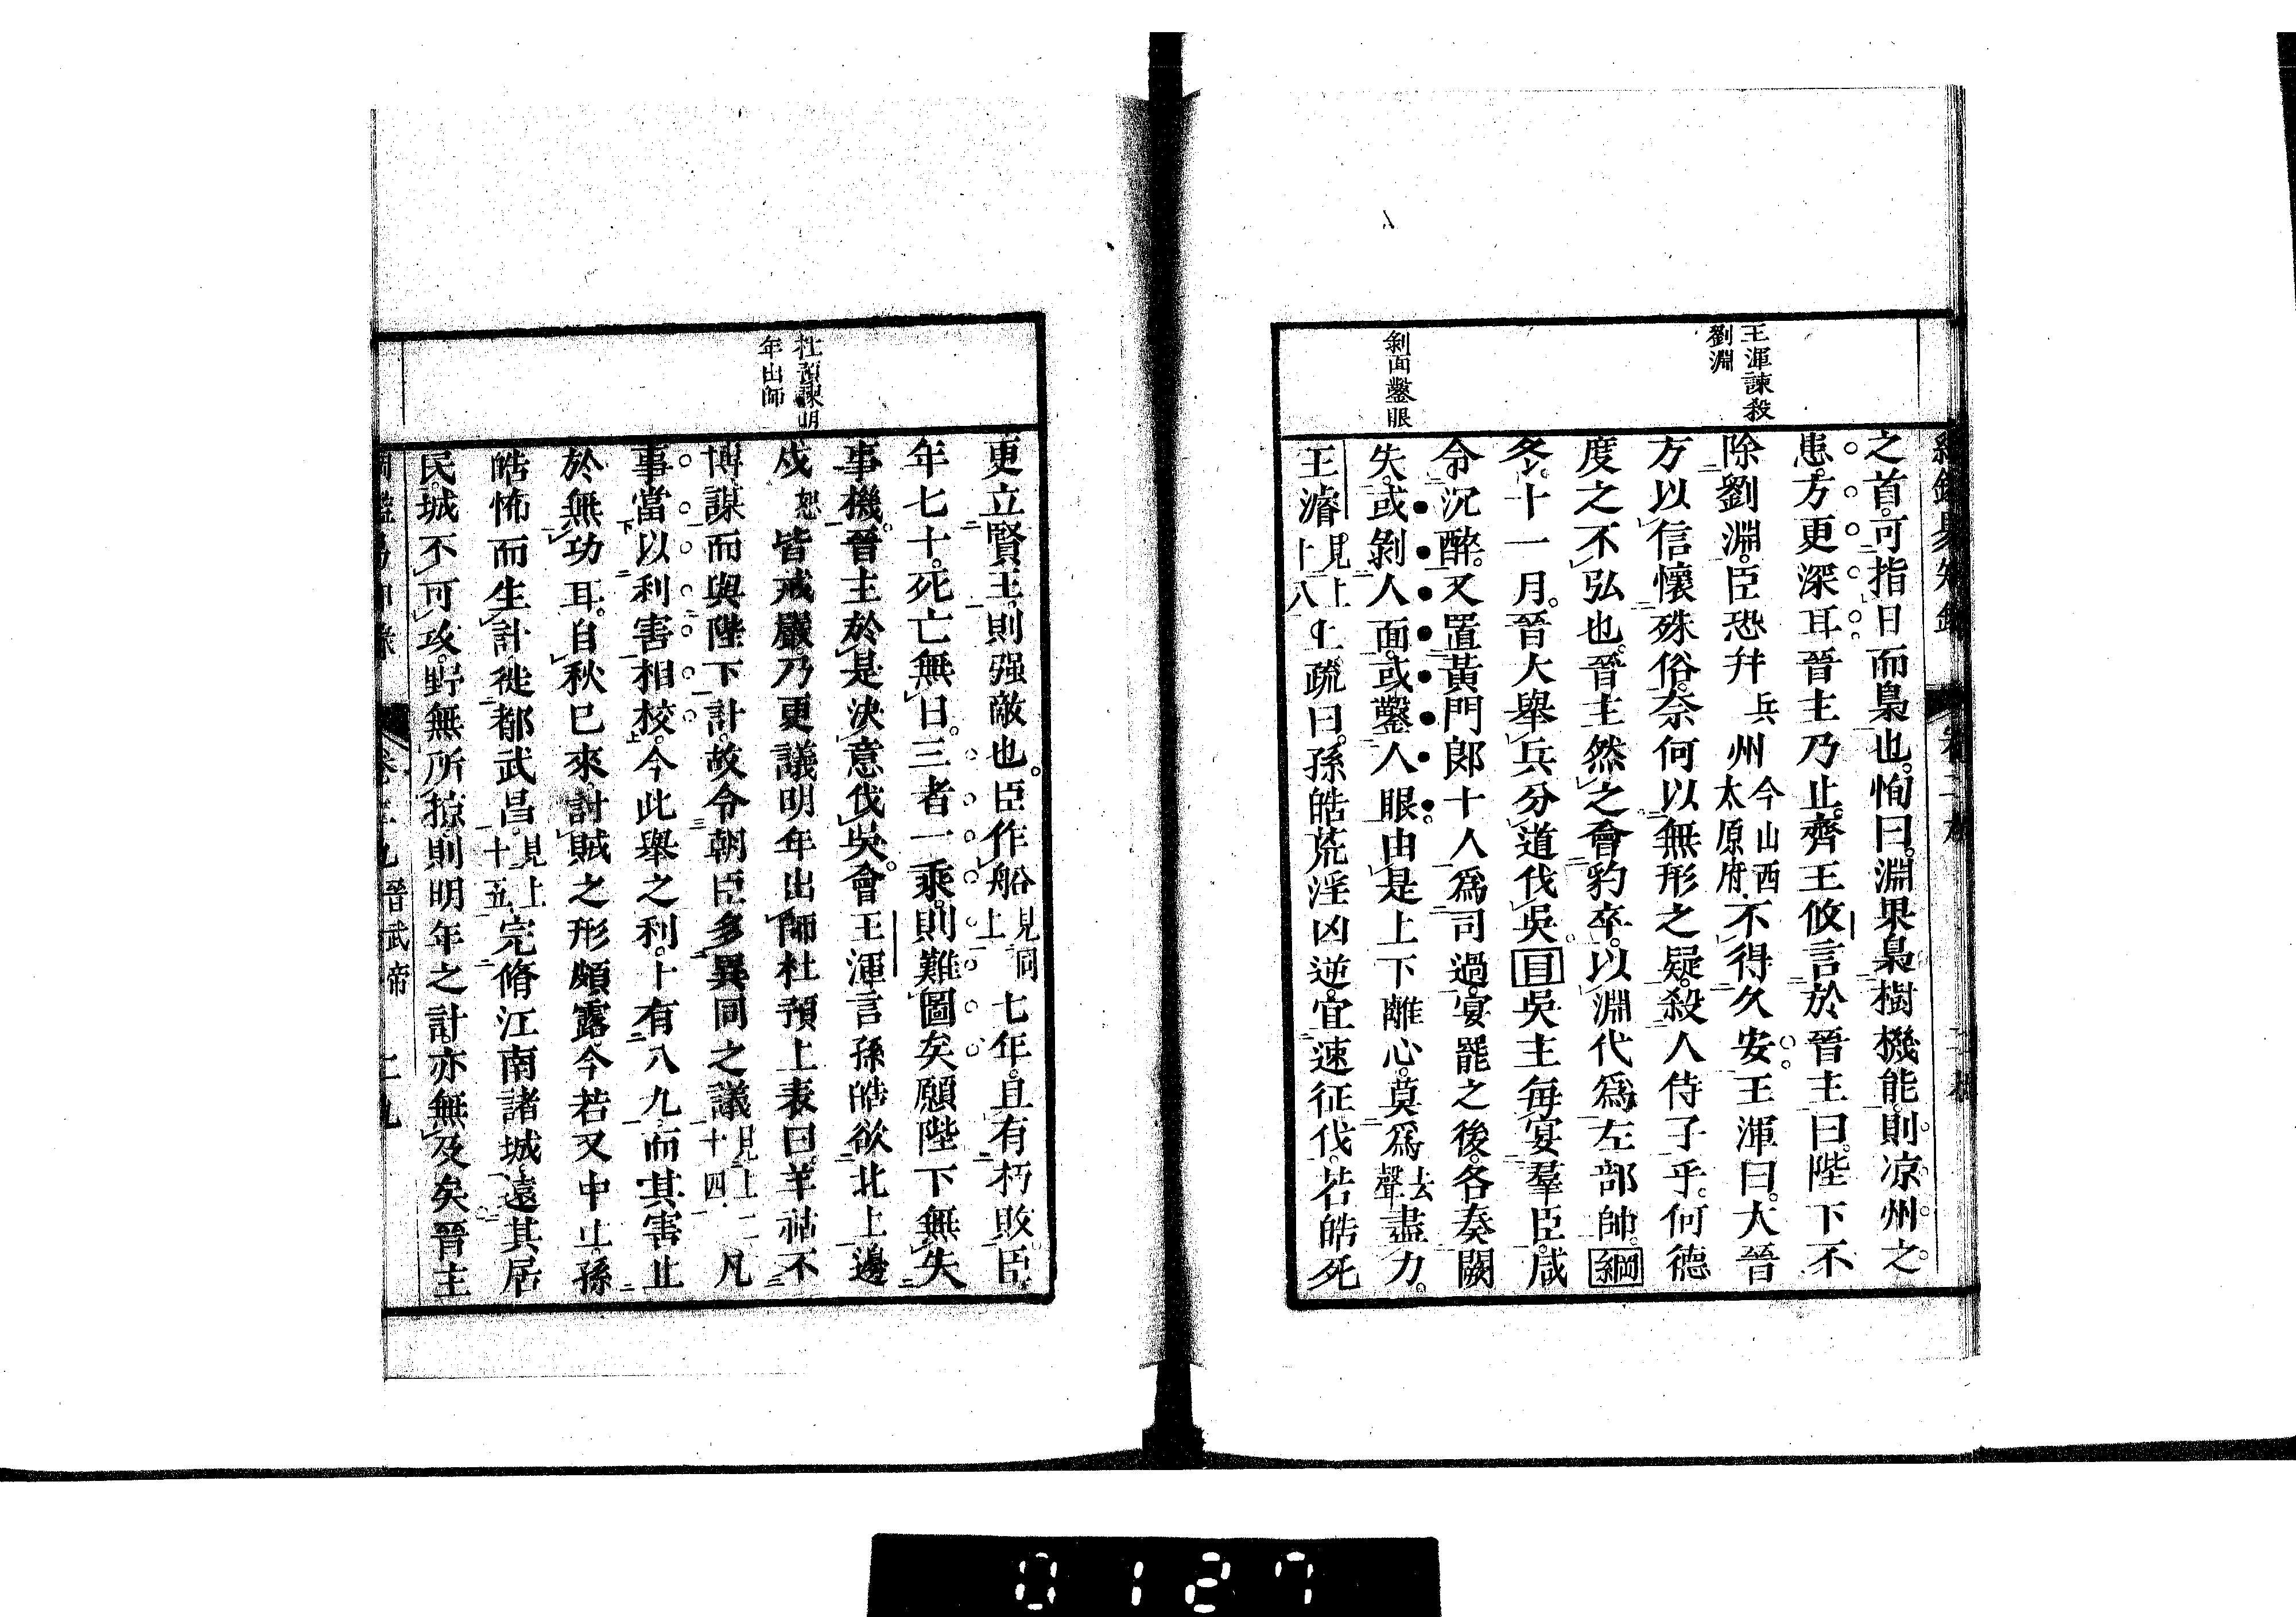 王渾諫殺
劉淵
剝面鑿眼
之首可指日而梟也恂曰淵果梟樹機能則凉州之
患方更深耳晉主乃止齊王攸言於晉主曰陛下不
除劉淵臣恐幷兵州今山西太原府不得久安王渾曰大晉
方以信懷殊俗奈何以無形之疑殺人侍子乎何德
度之不弘也晉主然之會豹卒以淵代爲左部帥綱
冬十一月晉大舉兵分道伐吳目吳主每宴羣臣咸
令沉醉又置黃門郎十人爲司過宴罷之後各奏闕
失或剝人面或鑿人眼由是上下離心莫爲去聲盡力
王濬見上十八上疏曰孫皓荒淫凶逆宜速征伐若皓死
杜預諫明
年出師
更立賢王則强敵也臣作船見上同七年且有朽敗臣
年七十死亡無日三者一乘則難圖矣願陛下無失
事機晉主於是決意伐吳會王渾言孫皓欲北上邊
戍恕皆戒嚴乃更議明年出師杜預上表曰羊祜不
博謀而與陛下計故令朝臣多異同之議見上二十四凡
事當以利害相校今此舉之利十有八九而其害止
於無功耳自秋已來討賊之形頗露今若又中止孫
皓怖而生計徙都武昌見上十五完脩江南諸城遠其居
民城不可攻野無所掠則明年之計亦無及矣晉主
晉武帝
0127